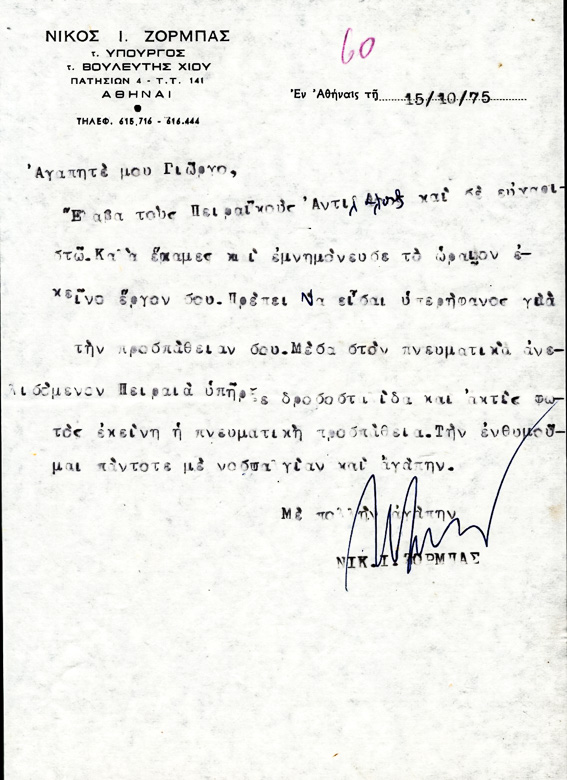 ΝΙΚΟΣ Ι. ΖΟΡΜΠΑΣ
τ. ΥΠΟΥΡΓΟΣ
τ. ΒΟΥΛΕΥΤΗΣ ΧΙΟΥ
ΠΑΤΗΣΙΩΝ 4 - Τ.Τ. 141
ΑΘΗΝΑΙ
ΤΗΛΕΦ. 615.716 - 616.444
60
Ἐν Ἀθήναις τῇ 15/10/75
Ἀγαπητέ μου Γιῶργο,
Ἔλαβα τούς Πειραϊκούς Ἀντιλάλους καί σέ εὐχαρι-
στῶ. Καλά ἔκαμες κι ἐμνημόνευσε τό ὡραῖον ἐ-
κεῖνο ἔργον σου. Πρέπει Να εἶσαι ὑπερήφανος γιά
τήν προσπάθειαν σου. Μέσα στόν πνευματικά ἀνε-
λισόμενον Πειραιά ὑπῆρξε δροσοστιλίδα και ἀκτίς φω-
τός ἐκείνη ἡ πνευματική προσπάθεια. Τήν ἐνθυμοῦ-
μαι πάντοτε μέ νοσταλγίαν καί ἀγάπην.
Μέ πολλήν ἀγάπην
ΝΙΚ. Ι. ΖΟΡΜΠΑΣ